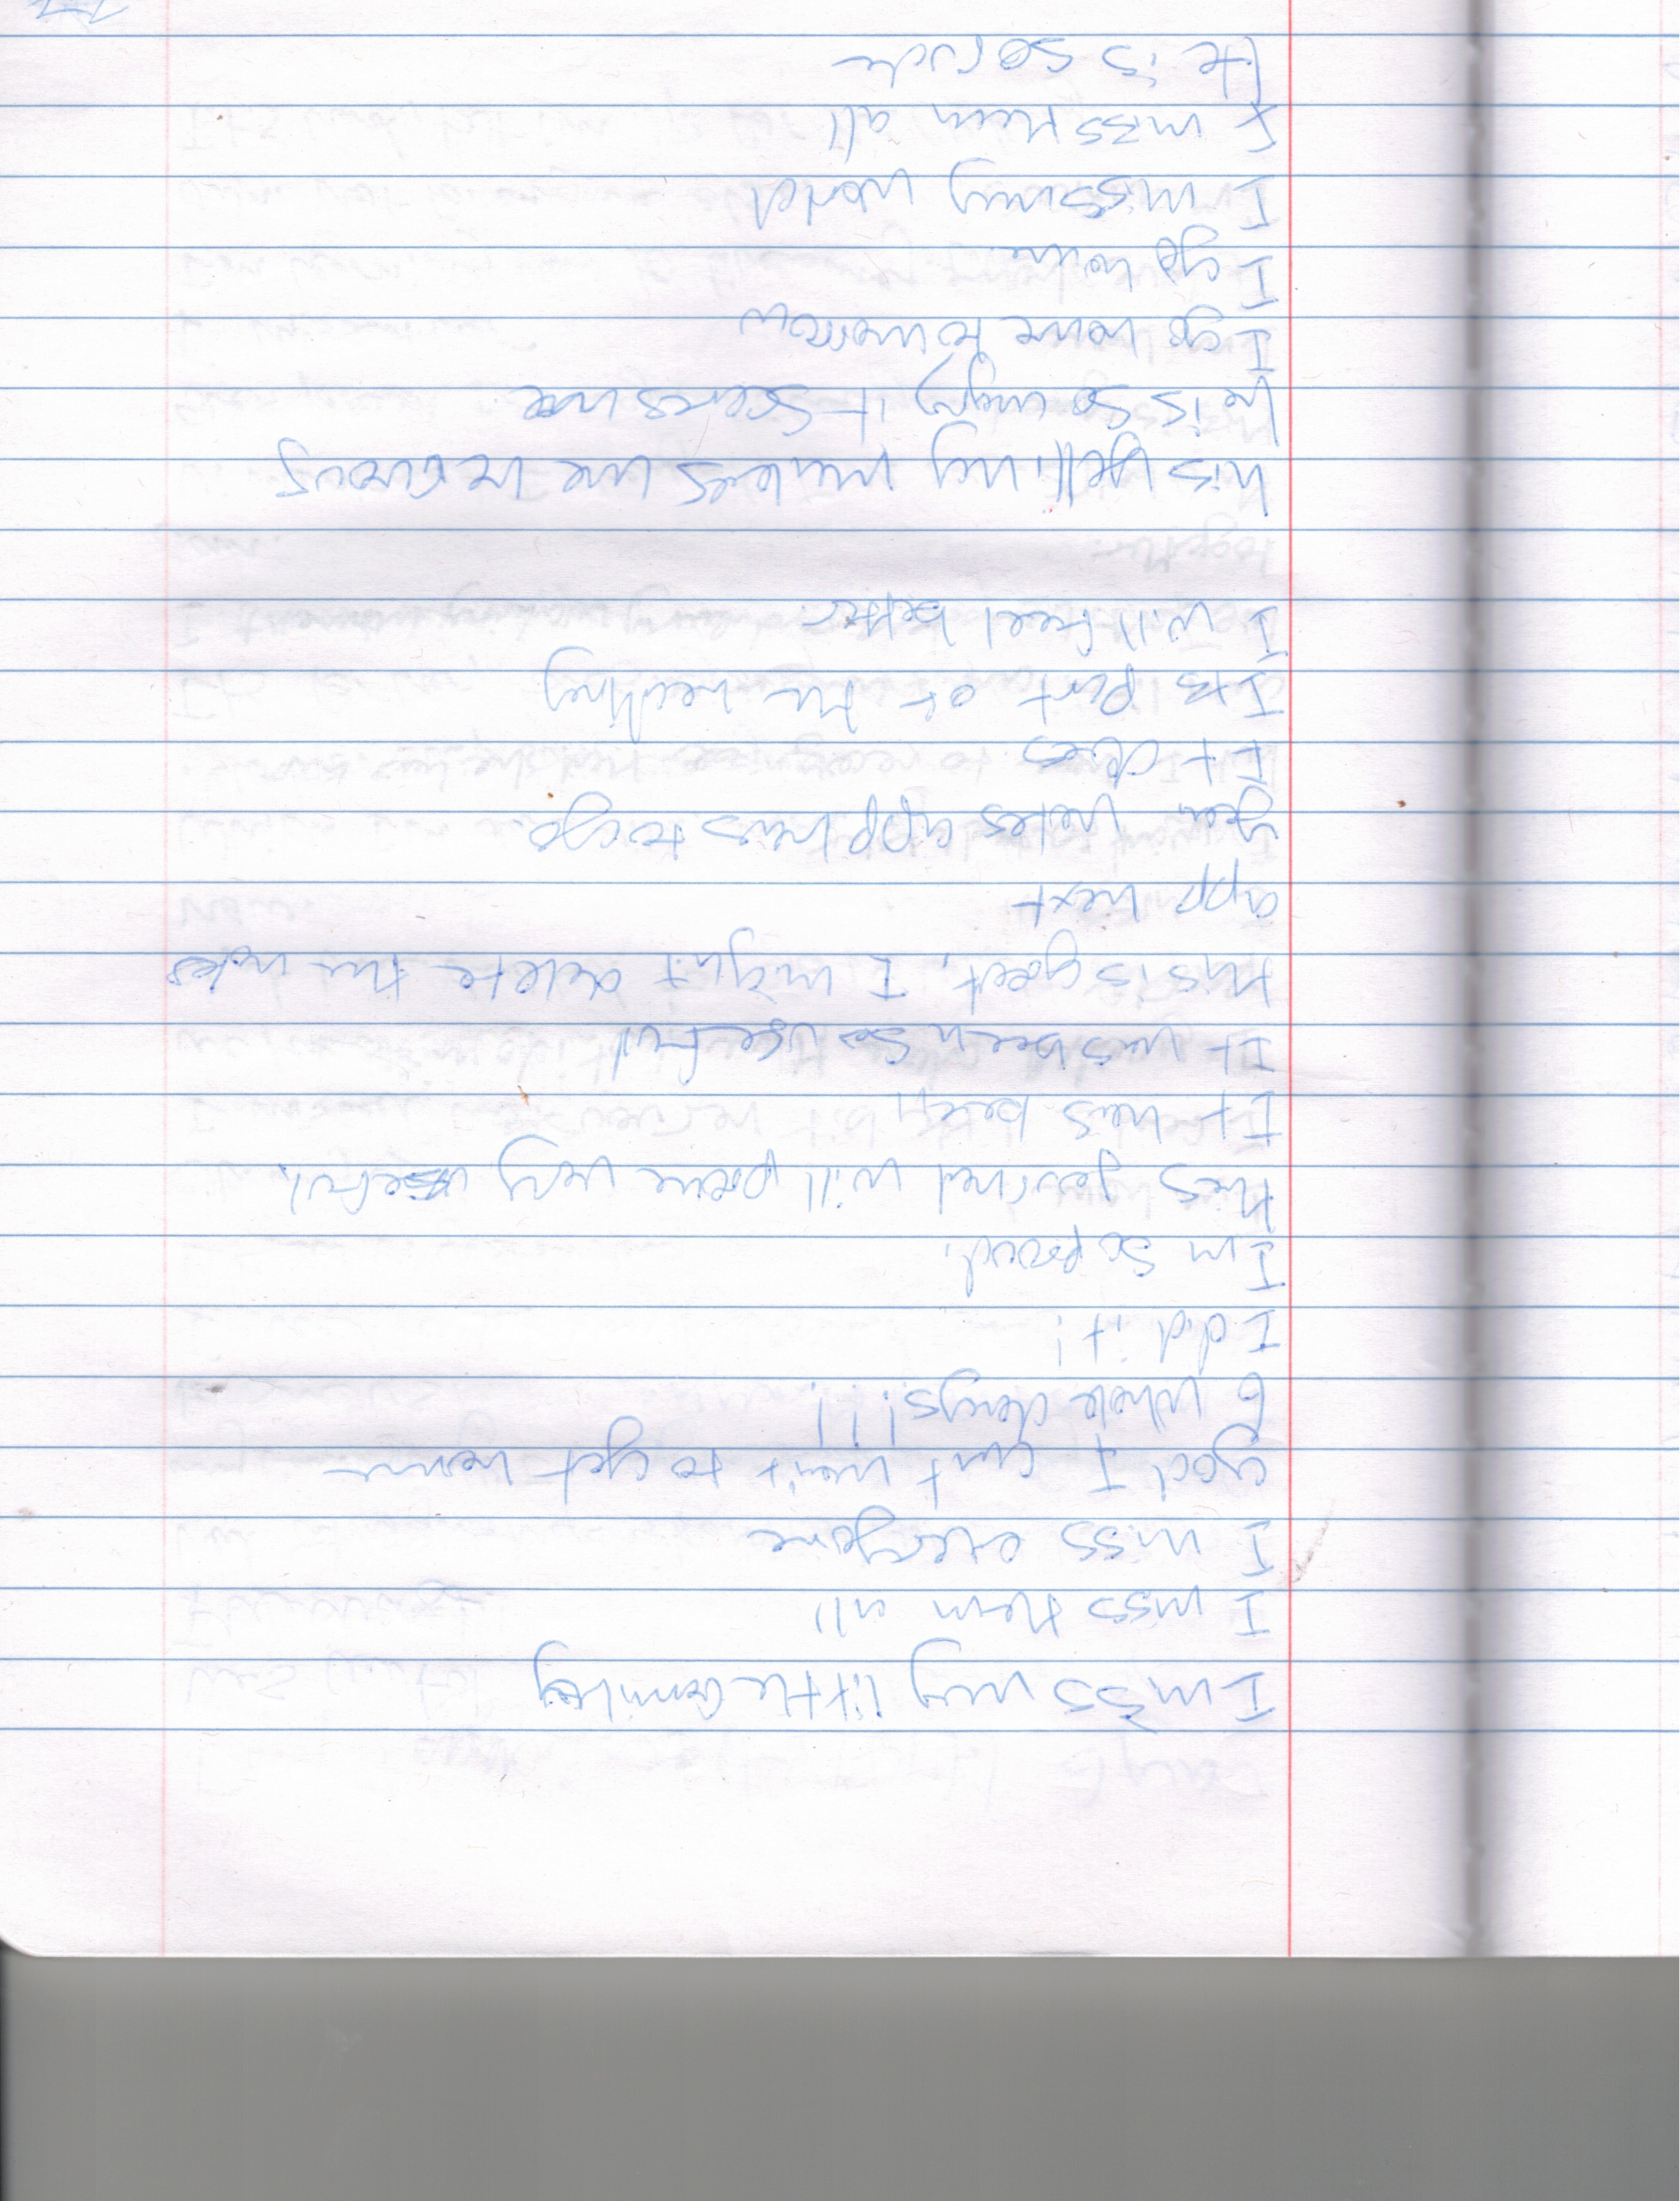 I miss my little family
I miss them all
I miss everyone
God I cant wait to get home
6 whole days!!!!
I did it!
Im so proud.
this journal will prove very useful.
It has been,
It has been so useful
this is great, I might delete the notes
app next
yea notes app has to go
It does
Its part of the healing
I will feel better.
his yelling makes me nervous
he is so angry it scares me
I go home tomorrow
I go home
I miss my world
I miss them all
He is so rude